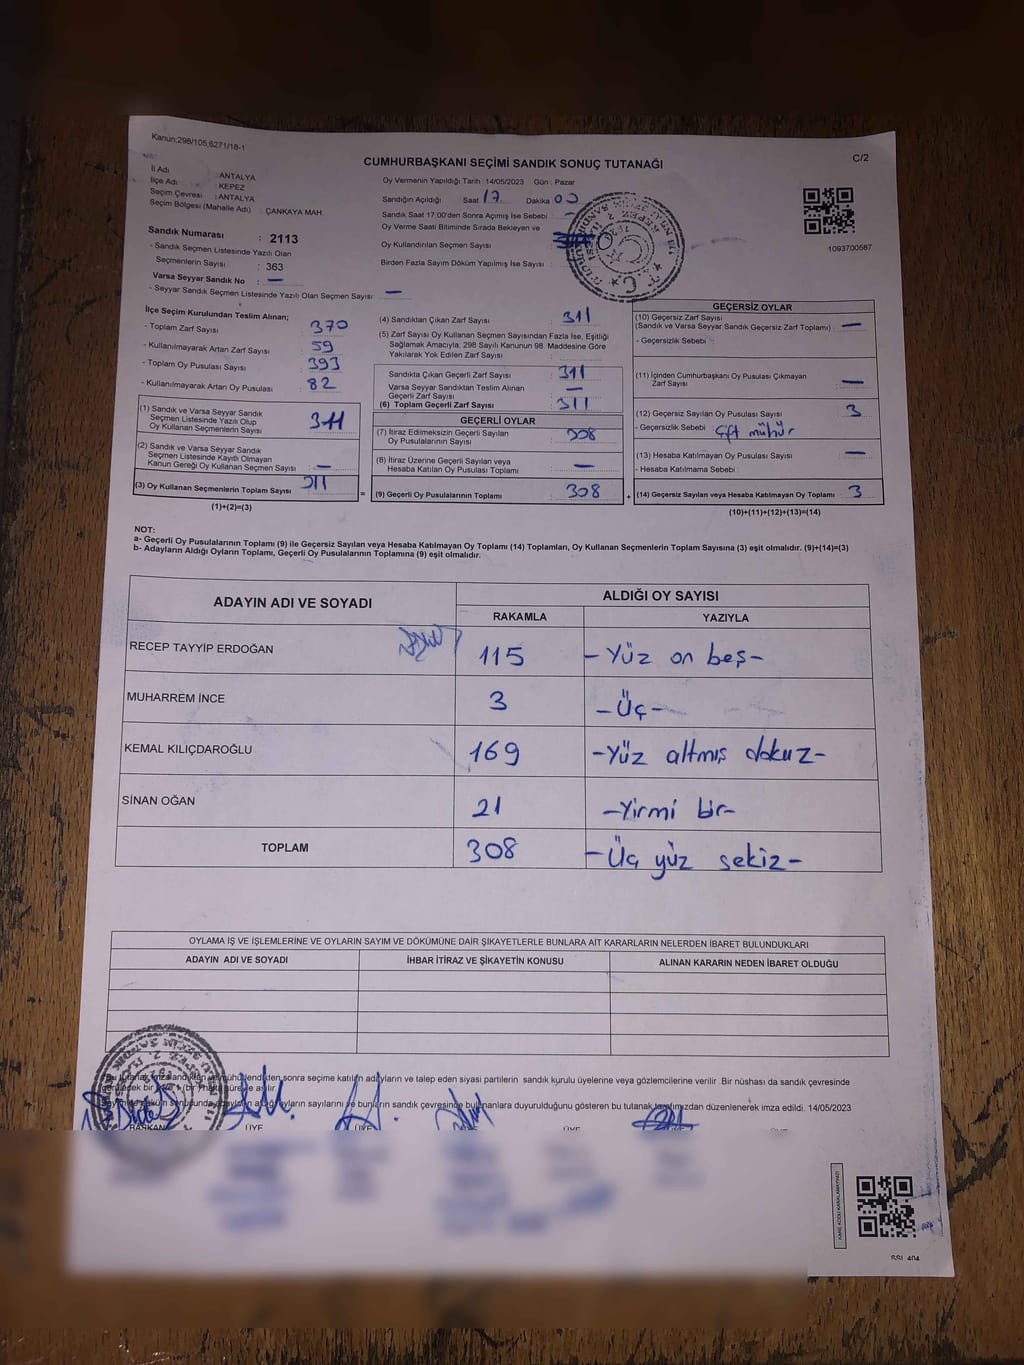 Kanun:298/105,6271/18-1
CUMHURBAŞKANI SEÇİMİ SANDIK SONUÇ TUTANAĞI
C/2
İl Adı : ANTALYA
İlçe Adı : KEPEZ
Seçim Çevresi : ANTALYA
Seçim Bölgesi (Mahalle Adı) : ÇANKAYA MAH.
Sandık Numarası : 2113
- Sandık Seçmen Listesinde Yazılı Olan
Seçmenlerin Sayısı : 363
Varsa Seyyar Sandık No : —
- Seyyar Sandık Seçmen Listesinde Yazılı Olan Seçmen Sayısı: —
Oy Vermenin Yapıldığı Tarih : 14/05/2023 Gün : Pazar
Sandığın Açıldığı Saat 17 Dakika 00
Sandık Saat 17:00'den Sonra Açımış İse Sebebi : —
Oy Verme Saati Bitiminde Sırada Bekleyen ve
Oy Kullandırılan Seçmen Sayısı
Birden Fazla Sayım Döküm Yapılmış İse Sayısı :
1093700587
İlçe Seçim Kurulundan Teslim Alınan;
- Toplam Zarf Sayısı : 370
- Kullanılmayarak Artan Zarf Sayısı : 59
- Toplam Oy Pusulası Sayısı : 393
- Kullanılmayarak Artan Oy Pusulası : 82
(1) Sandık ve Varsa Seyyar Sandık
Seçmen Listesinde Yazılı Olup
Oy Kullanan Seçmenlerin Sayısı : 311
(2) Sandık ve Varsa Seyyar Sandık
Seçmen Listesinde Kayıtlı Olmayan
Kanun Gereği Oy Kullanan Seçmen Sayısı : —
(3) Oy Kullanan Seçmenlerin Toplam Sayısı : 311
(1)+(2)=(3)
(4) Sandıktan Çıkan Zarf Sayısı : 311
(5) Zarf Sayısı Oy Kullanan Seçmen Sayısından Fazla İse, Eşitliği
Sağlamak Amacıyla; 298 Sayılı Kanunun 98. Maddesine Göre
Yakılarak Yok Edilen Zarf Sayısı :
Sandıkta Çıkan Geçerli Zarf Sayısı : 311
Varsa Seyyar Sandıktan Teslim Alınan
Geçerli Zarf Sayısı : —
(6) Toplam Geçerli Zarf Sayısı : 311
GEÇERLİ OYLAR
(7) İtiraz Edilmeksizin Geçerli Sayılan
Oy Pusulalarının Sayısı : 308
(8) İtiraz Üzerine Geçerli Sayılan veya
Hesaba Katılan Oy Pusulası Toplamı : —
= (9) Geçerli Oy Pusulalarının Toplamı : 308
GEÇERSİZ OYLAR
(10) Geçersiz Zarf Sayısı
(Sandık ve Varsa Seyyar Sandık Geçersiz Zarf Toplamı) : —
- Geçersizlik Sebebi :
(11) İçinden Cumhurbaşkanı Oy Pusulası Çıkmayan
Zarf Sayısı : —
(12) Geçersiz Sayılan Oy Pusulası Sayısı : 3
- Geçersizlik Sebebi : Çift mühür
(13) Hesaba Katılmayan Oy Pusulası Sayısı : —
- Hesaba Katılmama Sebebi :
+ (14) Geçersiz Sayılan veya Hesaba Katılmayan Oy Toplamı : 3
(10)+(11)+(12)+(13)=(14)
NOT:
a- Geçerli Oy Pusulalarının Toplamı (9) ile Geçersiz Sayılan veya Hesaba Katılmayan Oy Toplamı (14) Toplamları, Oy Kullanan Seçmenlerin Toplam Sayısına (3) eşit olmalıdır. (9)+(14)=(3)
b- Adayların Aldığı Oyların Toplamı, Geçerli Oy Pusulalarının Toplamına (9) eşit olmalıdır.
ADAYIN ADI VE SOYADI
ALDIĞI OY SAYISI
RAKAMLA YAZIYLA
RECEP TAYYİP ERDOĞAN 115 -Yüz on beş-
MUHARREM İNCE 3 -Üç-
KEMAL KILIÇDAROĞLU 169 -Yüz altmış dokuz-
SİNAN OĞAN 21 -Yirmi bir-
TOPLAM 308 -Üç yüz sekiz-
OYLAMA İŞ VE İŞLEMLERİNE VE OYLARIN SAYIM VE DÖKÜMÜNE DAİR ŞİKAYETLERLE BUNLARA AİT KARARLARIN NELERDEN İBARET BULUNDUKLARI
ADAYIN ADI VE SOYADI İHBAR İTİRAZ VE ŞİKAYETİN KONUSU ALINAN KARARIN NEDEN İBARET OLDUĞU
sonra seçime katılan adayların ve talep eden siyasi partilerin sandık kurulu üyelerine veya gözlemcilerine verilir .Bir nüshası da sandık çevresinde
oyların sayılarını ve bunların sandık çevresinde bulunanlara duyurulduğunu gösteren bu tutanak tarafımızdan düzenlenerek imza edildi. 14/05/2023
BAŞKAN ÜYE ÜYE ÜYE ÜYE